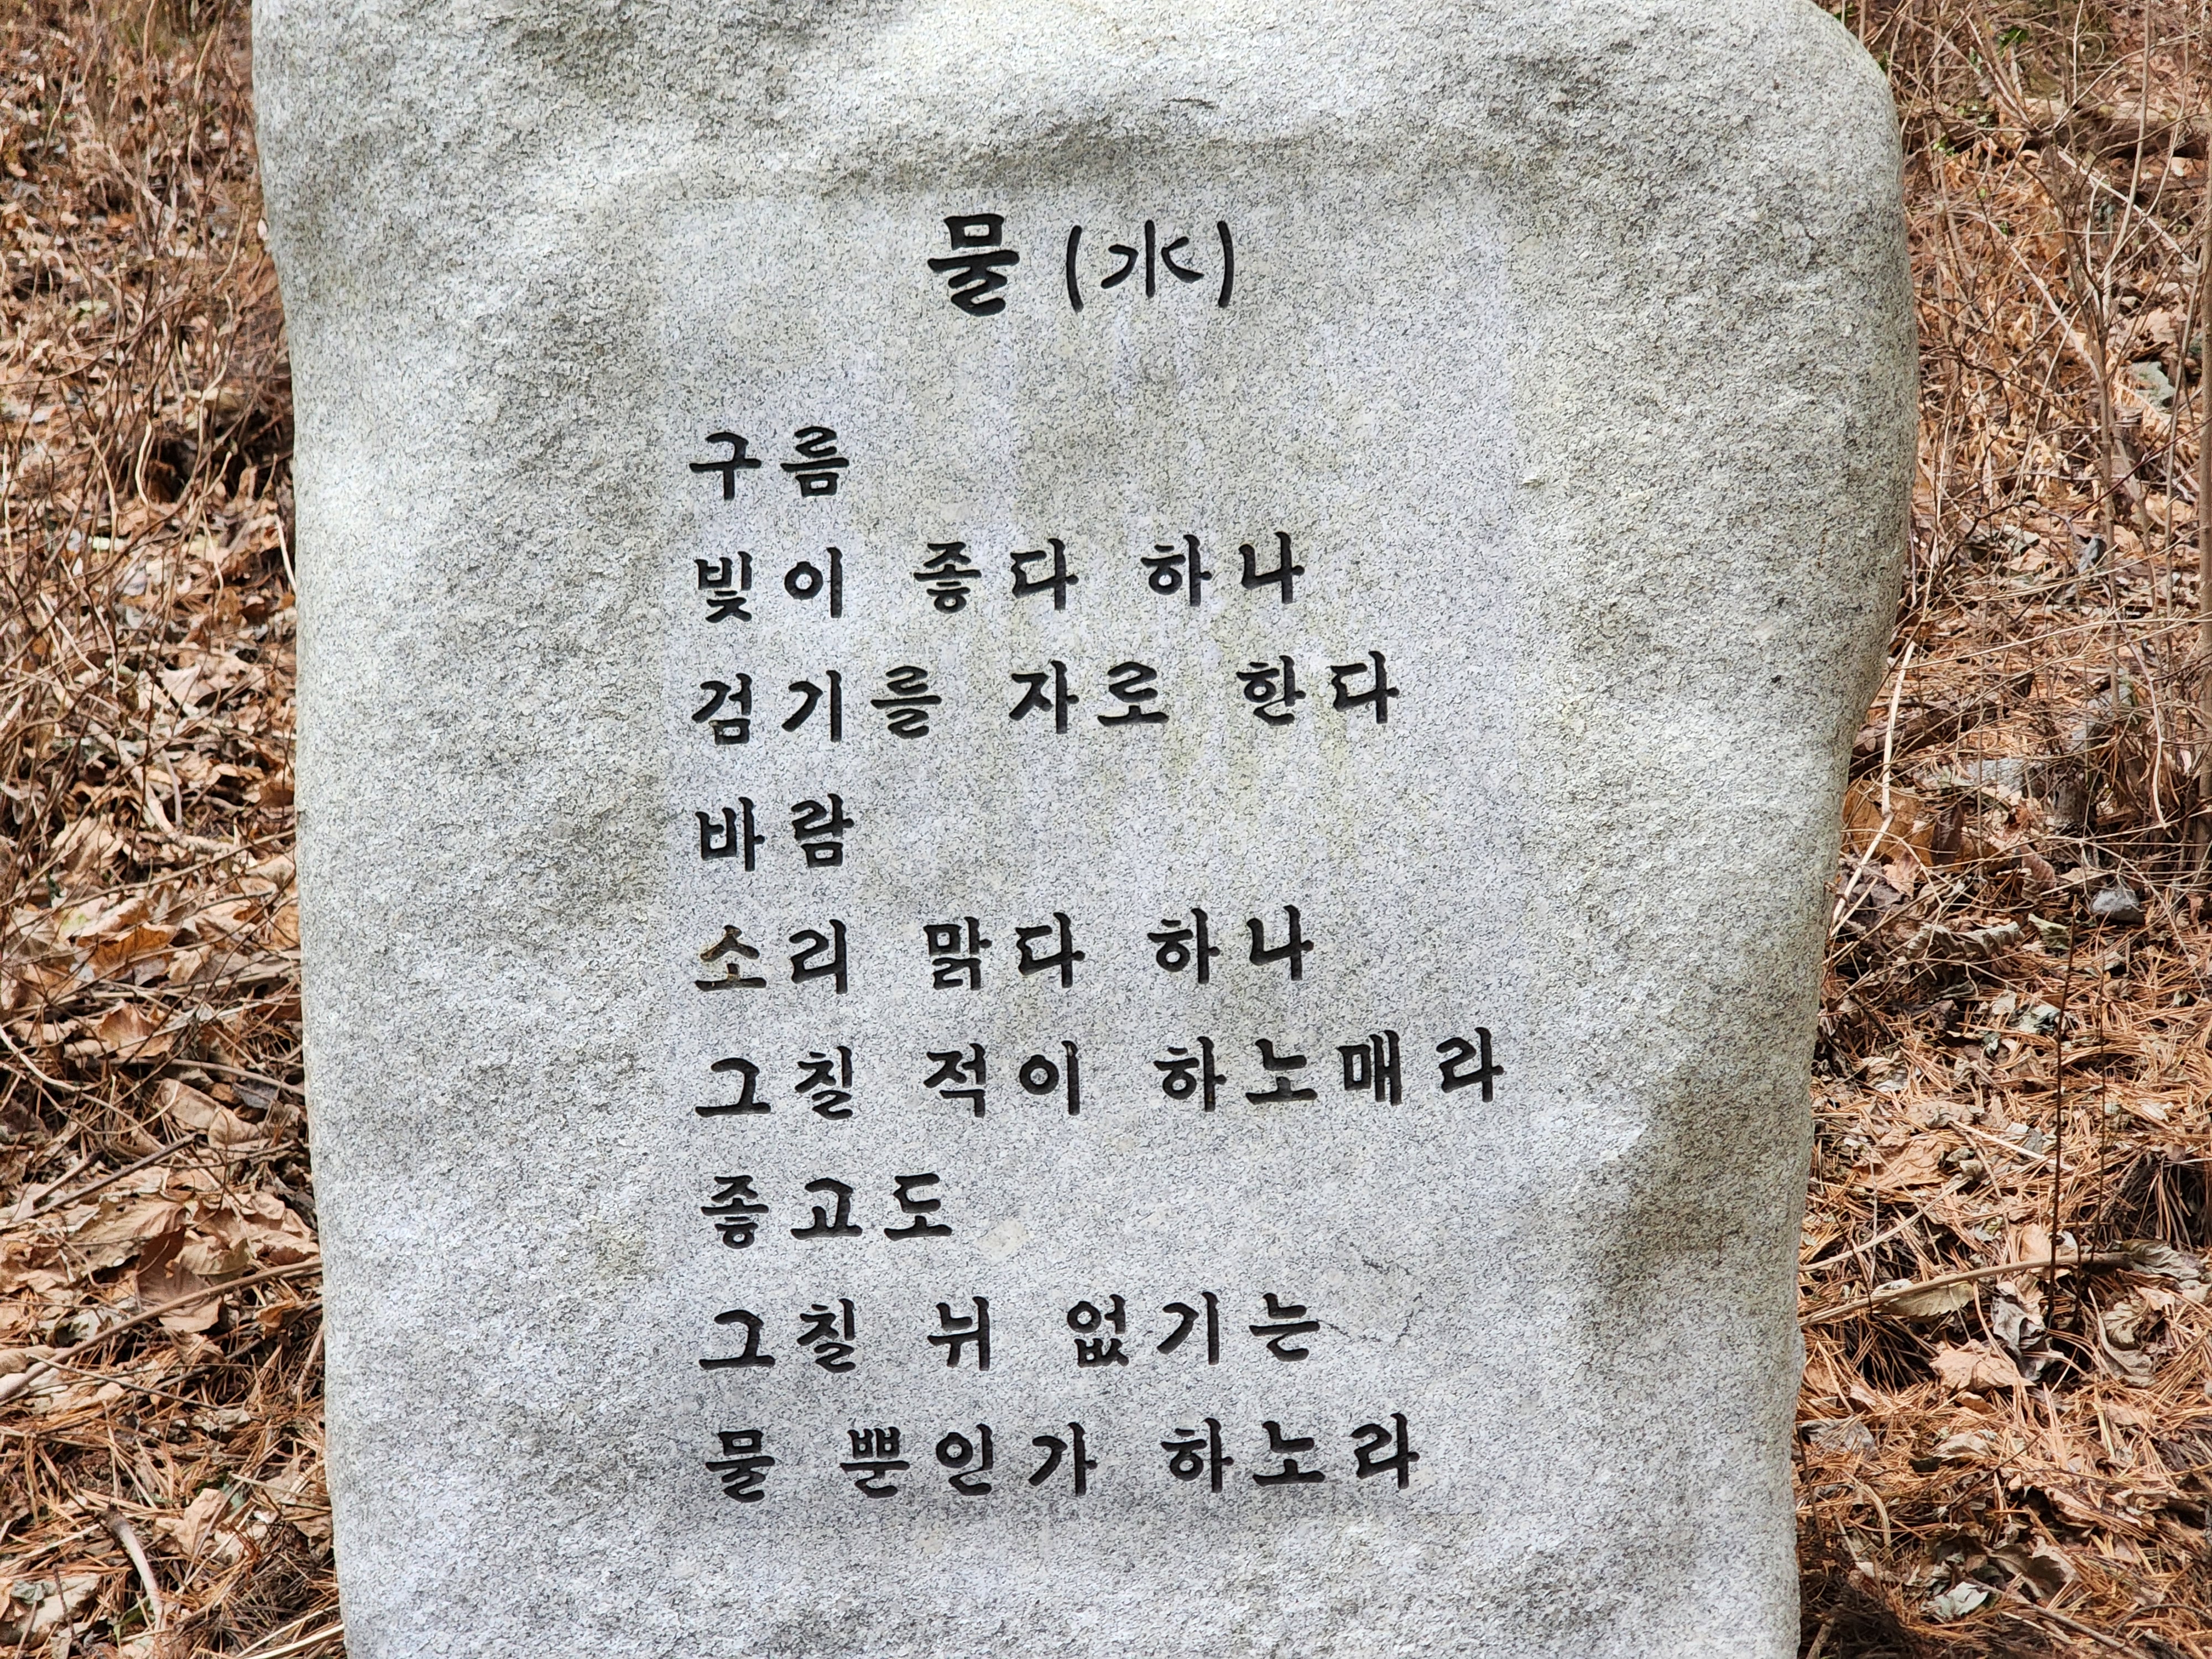 물 (水)
구름
빛이 좋다 하나
검기를 자로 한다
바람
소리 맑다 하나
그칠 적이 하노매라
좋고도
그칠 뉘 없기는
물 뿐인가 하노라